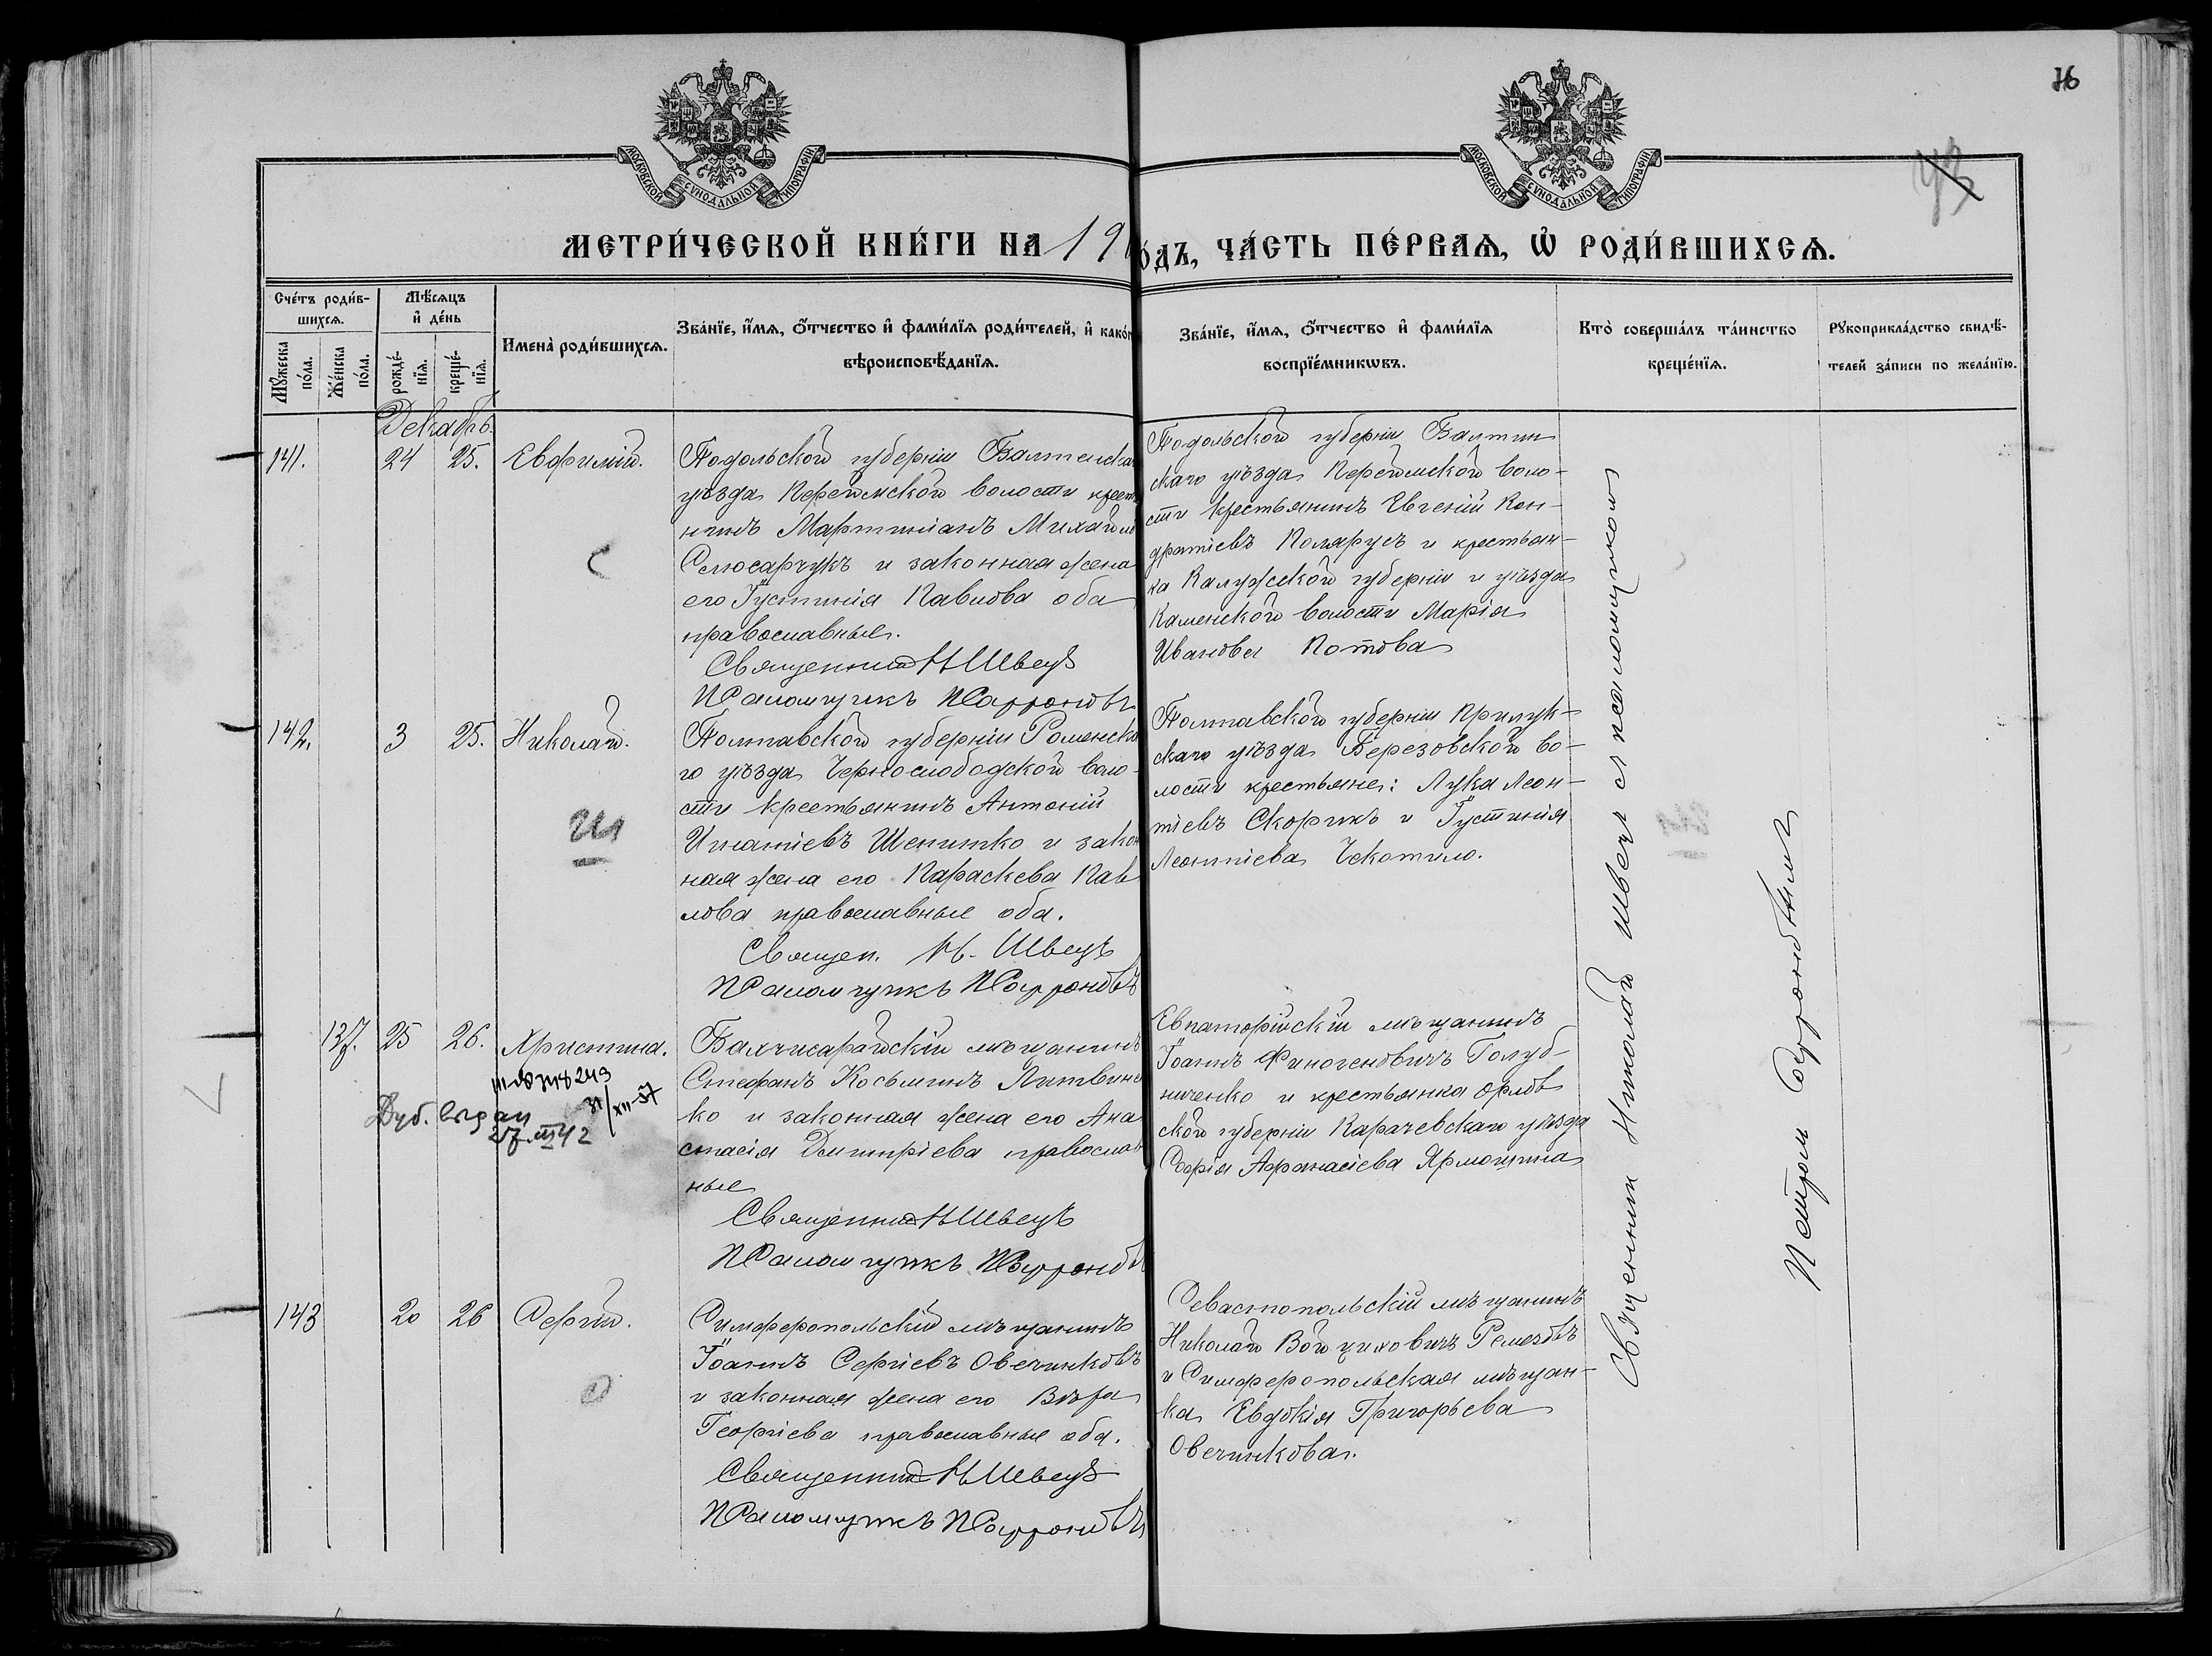 76
МОСКОВСКОЙ СѴНОДАЛЬНОЙ ТИПОГРАФІИ
МОСКОВСКОЙ СѴНОДАЛЬНОЙ ТИПОГРАФІИ
МЕТРИ́ЧЕСКОЙ КНИ́ГИ НА 19
О́ДЪ, ЧА́СТЬ ПЕ́РВАѦ, Ѽ РОДИ́ВШИХСѦ.
Сче́тъ роди́в-
шихсѧ.
Мꙋ́жеска по́ла.
Же́нска по́ла.
Мѣ́сѧцъ
и҆ де́нь
рожде́-
нїѧ.
креще́-
нїѧ.
Имена̀ роди́вшихсѧ.
Зва́нїе, и҆́мѧ, ѻ҆́тчество и҆ фами́лїѧ роди́телей, и҆ како́г
вѣроисповѣ́данїѧ.
Зва́нїе, и҆́мѧ, ѻ҆́тчество и҆ фами́лїѧ
воспрїе́мникѡвъ.
Кто̀ соверша́лъ та́инство
креще́нїѧ.
Рꙋкоприкла́дство свидѣ́-
телей за́писи по жела́нїю.
Декабрь.
141. 24 25. Евфимій.
Подольской губерніи Балтенска
уѣзда Перейменской волости крестья
нинъ Мартиніанъ Михайлов
Слюсарчукъ и законная жена
его Іустинія Павлова оба
православные.
Священникъ Н Швецъ
Псаломщикъ П Софроновъ
Подольской губерніи Балтин
скаго уѣзда Перейменской воло-
сти крестьянинъ Евгеній Кон-
дратіевъ Полярусъ и крестьян-
ка Калужской губерніи и уѣзда
Каменской волости Марія
Иванова Котова
142. 3 25. Николай.
Ш
Полтавской губерніи Роменска
го уѣзда Чернослободской воло-
сти крестьянинъ Антоній
Игнатіевъ Шепитко и закон
ная жена его Параскева Пав
лова православные оба.
Священ. Н. Швецъ
Псаломщикъ П Софроновъ
Полтавской губерніи Прилук-
скаго уѣзда Березовской во-
лости крестьяне: Лука Леон-
тіевъ Скорикъ и Іустинія
Леонтіева Чекотило.
137. 25 26. Христина.
Дуб. выдан
27-III 42
31/XII-57
Бахчисарайскій мѣщанинъ
Стефанъ Косьминъ Литвинен
ко и законная жена его Ана
стасія Димитріева православ
ные
Священникъ Н Швецъ
Псаломщикъ П Софроновъ
Евпаторійскій мѣщанинъ
Іоаннъ Финогеновичъ Голуб-
ниченко и крестьянка Орлов
ской губерніи Карачевскаго уѣзда
Софія Афанасіева Ярмошкина
143 20 26 Сергій.
Симферопольскій мѣщанинъ
Іоаннъ Сергіевъ Овечинковъ
и законная жена его Вѣра
Георгіева православные оба.
Священникъ Н Швецъ
Псаломщикъ П Софроновъ
Севастопольскій мѣщанинъ
Николай Войциховичъ Ремезовъ
и Симферопольская мѣщан-
ка Евдокія Григорьева
Овечинкова.
Священник Николай Швец с псаломщиком
Петром Софроновым